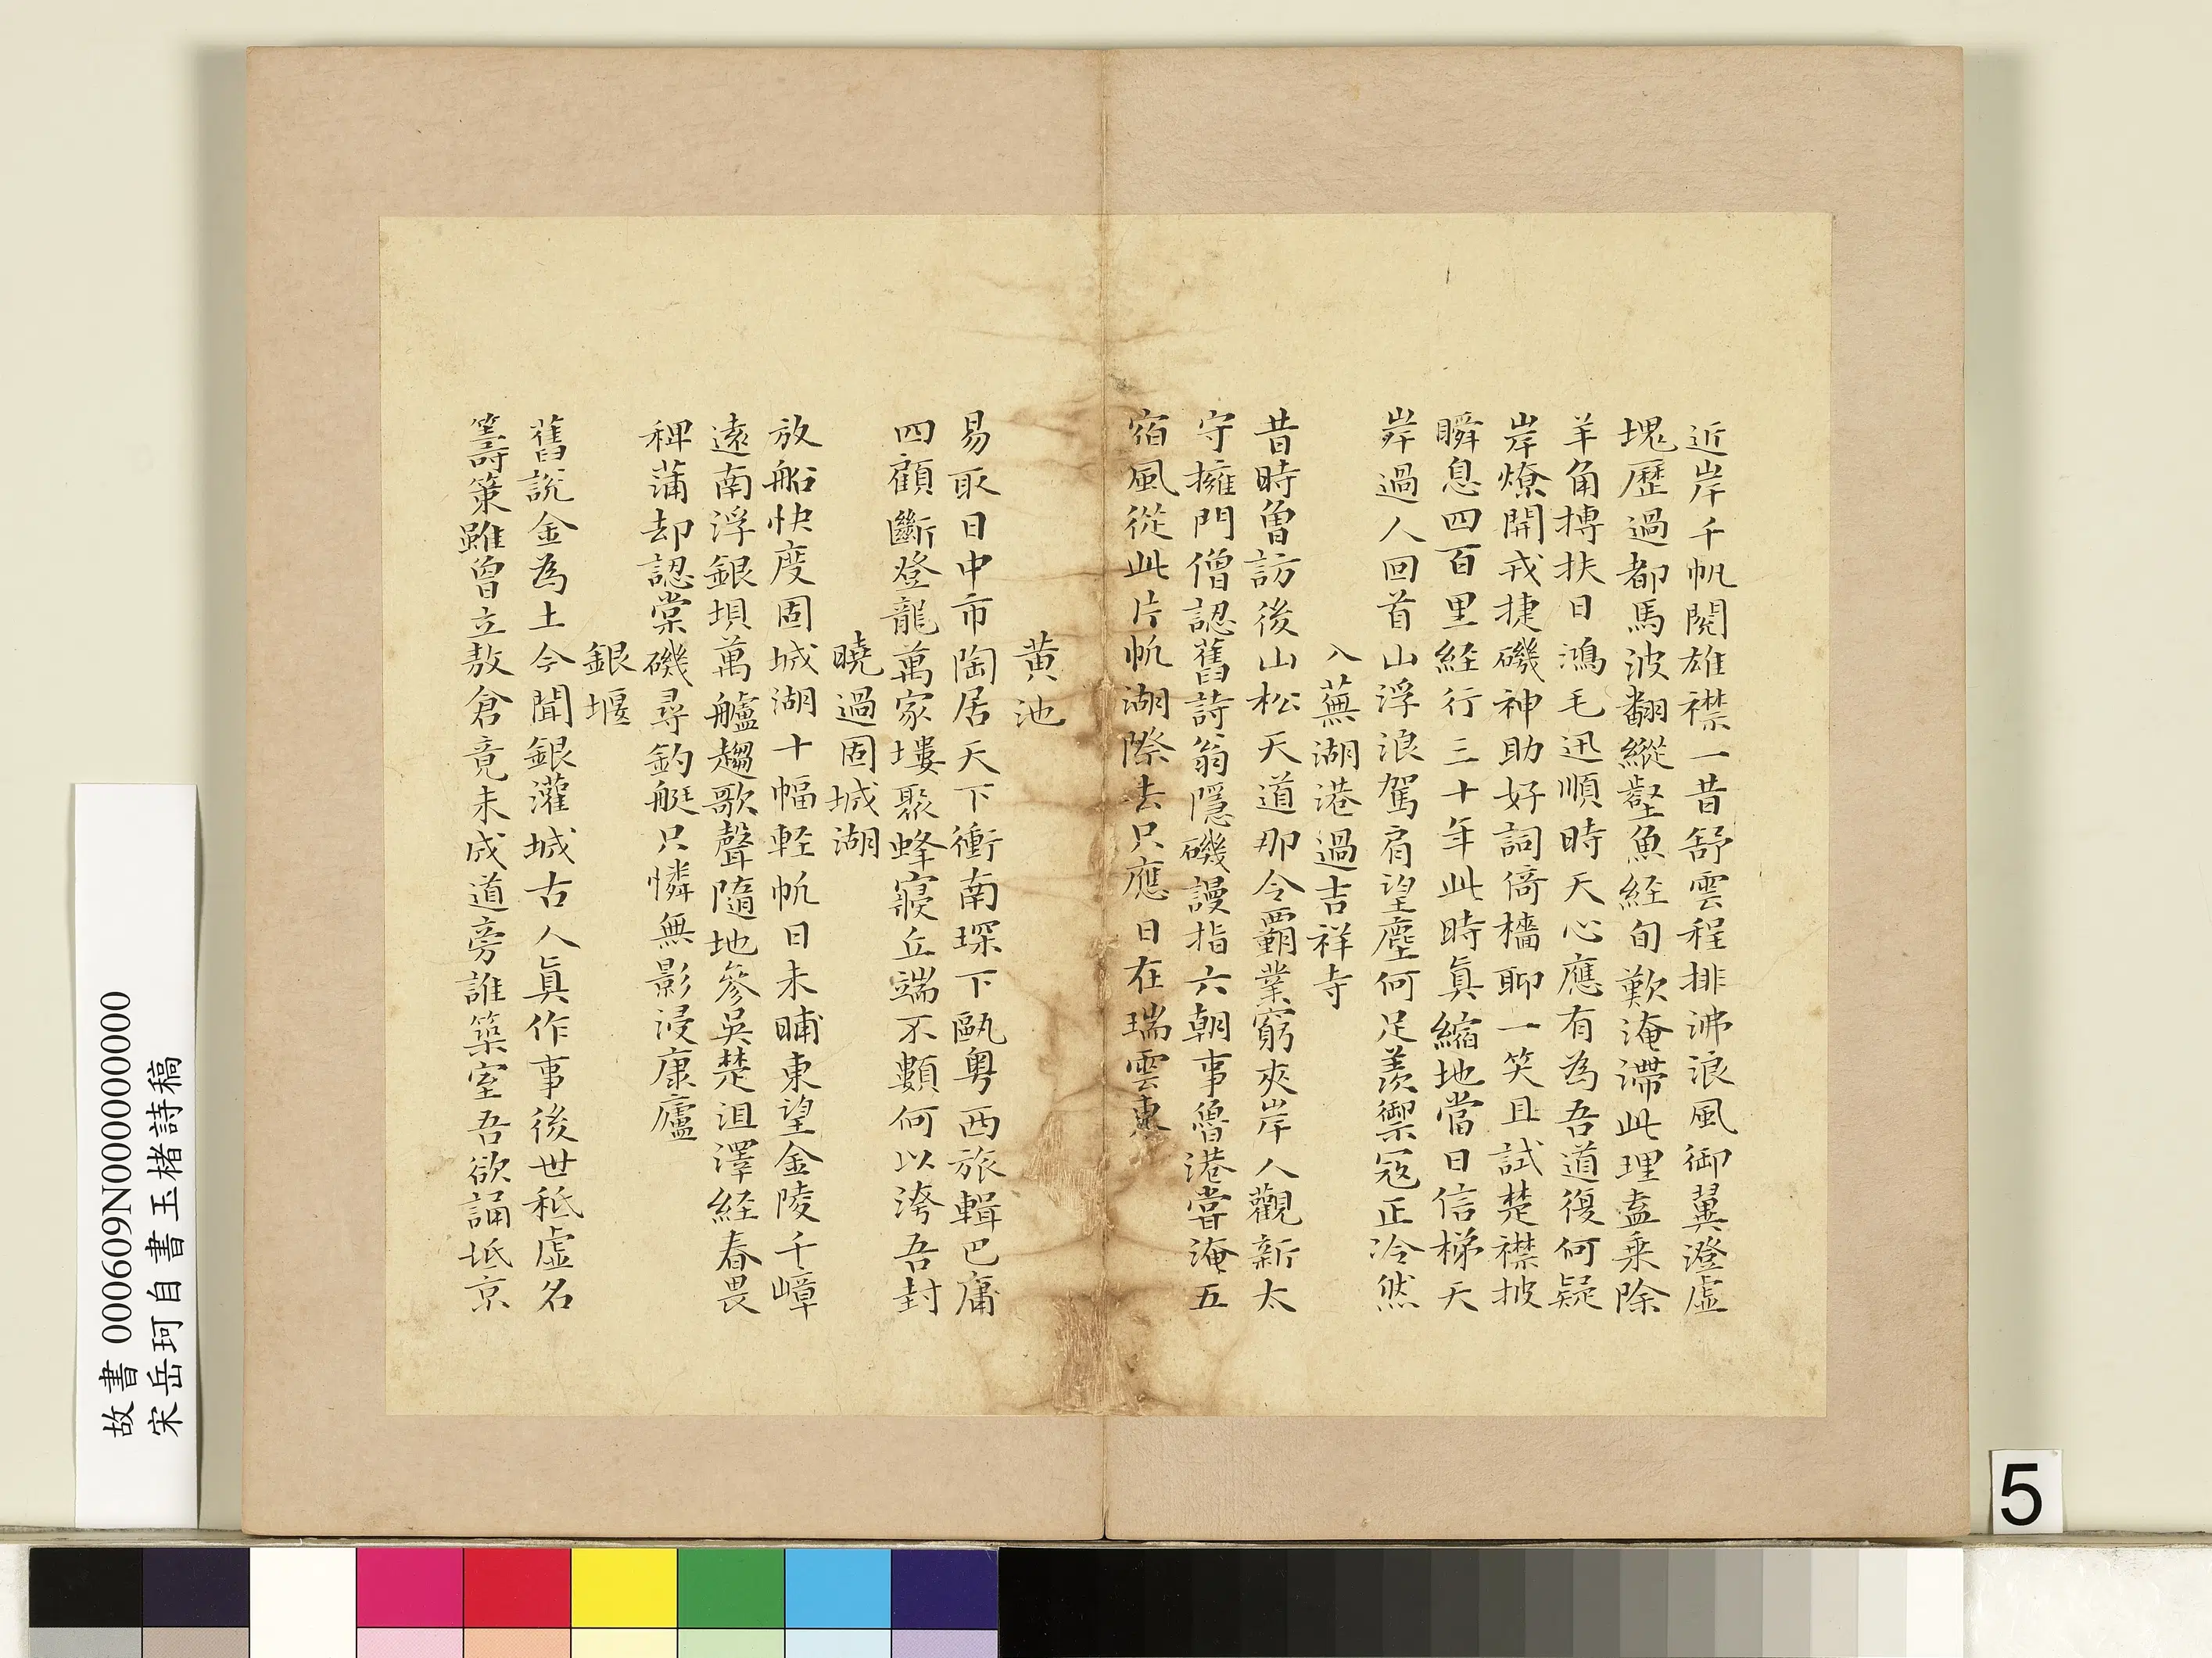 近岸千帆閱雄襟一昔舒雲程排沸浪風御翼澄虛
塊歷過都馬波翻縱壑魚経旬歎淹滯此理盍乗除
羊角摶扶日鴻毛迅順時天心應有為吾道復何疑
岸燎開戎捷磯神助好詞倚檣聊一笑且試楚襟披
瞬息四百里経行三十年此時真縮地當日信梯天
岸過人回首山浮浪駕肩望塵何足羨禦寇正冷然
入蕪湖港過吉祥寺
昔時曽訪後山松天道那令霸業窮夾岸人觀新太
守擁門僧認舊詩翁隱磯謾指六朝事魯港嘗淹五
宿風從此片帆湖際去只應日在瑞雲東
黄池
易取日中市陶居天下衝南琛下甌粤西旅輯巴庸
四顧斷登龍萬家塿聚蜂寢丘端不顭何以洿吾封
曉過固城湖
放船快度固城湖十幅軽帆日未晡東望金陵千嶂
遠南浮銀垻萬艫趨歌聲隨地參吳楚沮澤経春畏
稗蒲却認棠磯尋釣艇只憐無影浸康廬
銀堰
舊說金為土今聞銀灌城古人真作事後世秪虛名
籌策雖曾立敖倉竟未成道旁誰築室吾欲誦坻京
故書 000609N000000000
宋岳珂自書玉楮詩稿
5